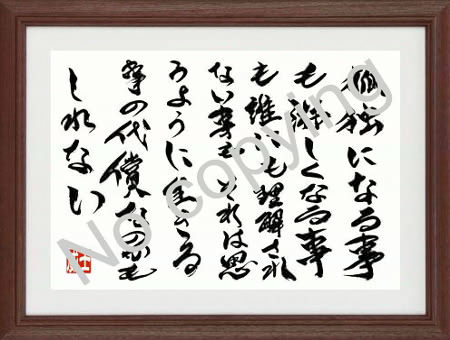 孤独になる事
も淋しくなる事
も誰にも理解され
ない事もそれは思
うように生きる
事の代償なのかも
しれない
No copying